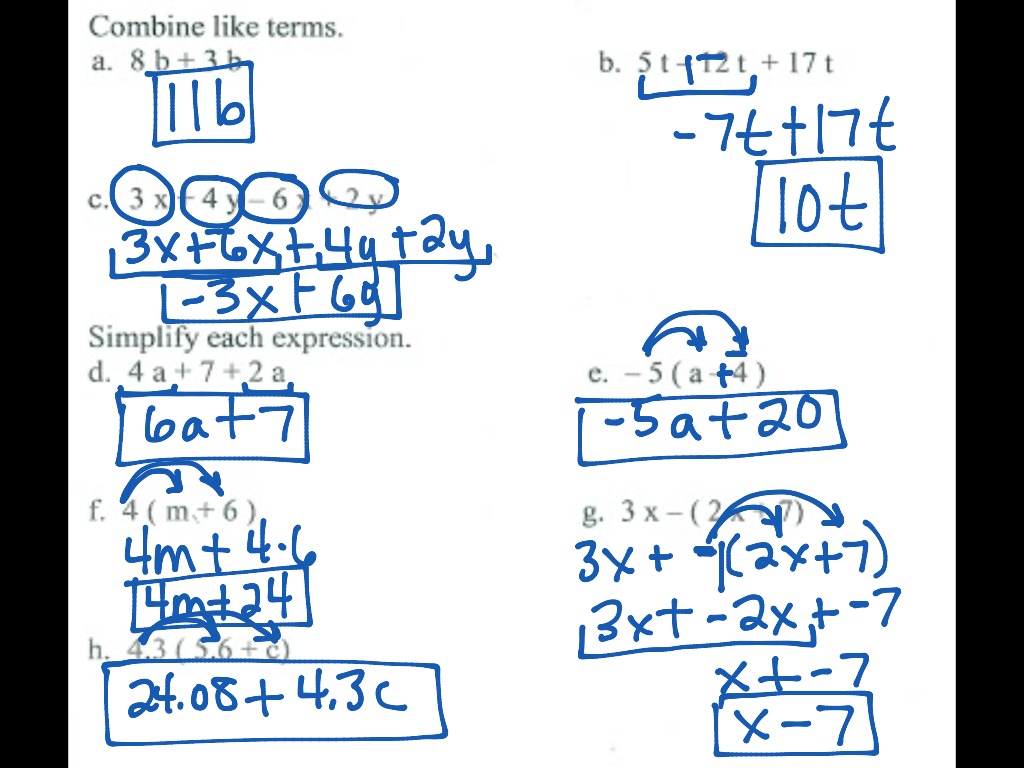 Combine like terms.
a. 8 b + 3 b
11b
b. 5 t - 12 t + 17 t
-7t + 17t
10t
c. 3 x + 4 y - 6 x + 2 y
3x + 6x + 4y + 2y
-3x + 6y
Simplify each expression.
d. 4 a + 7 + 2 a
6a + 7
e. - 5 ( a - 4 )
-5a + 20
f. 4 ( m + 6 )
4m + 4·6
4m + 24
g. 3 x - ( 2 x + 7)
3x + -1(2x+7)
3x + -2x + -7
x + -7
x - 7
h. 4.3 ( 5.6 + c)
24.08 + 4.3c